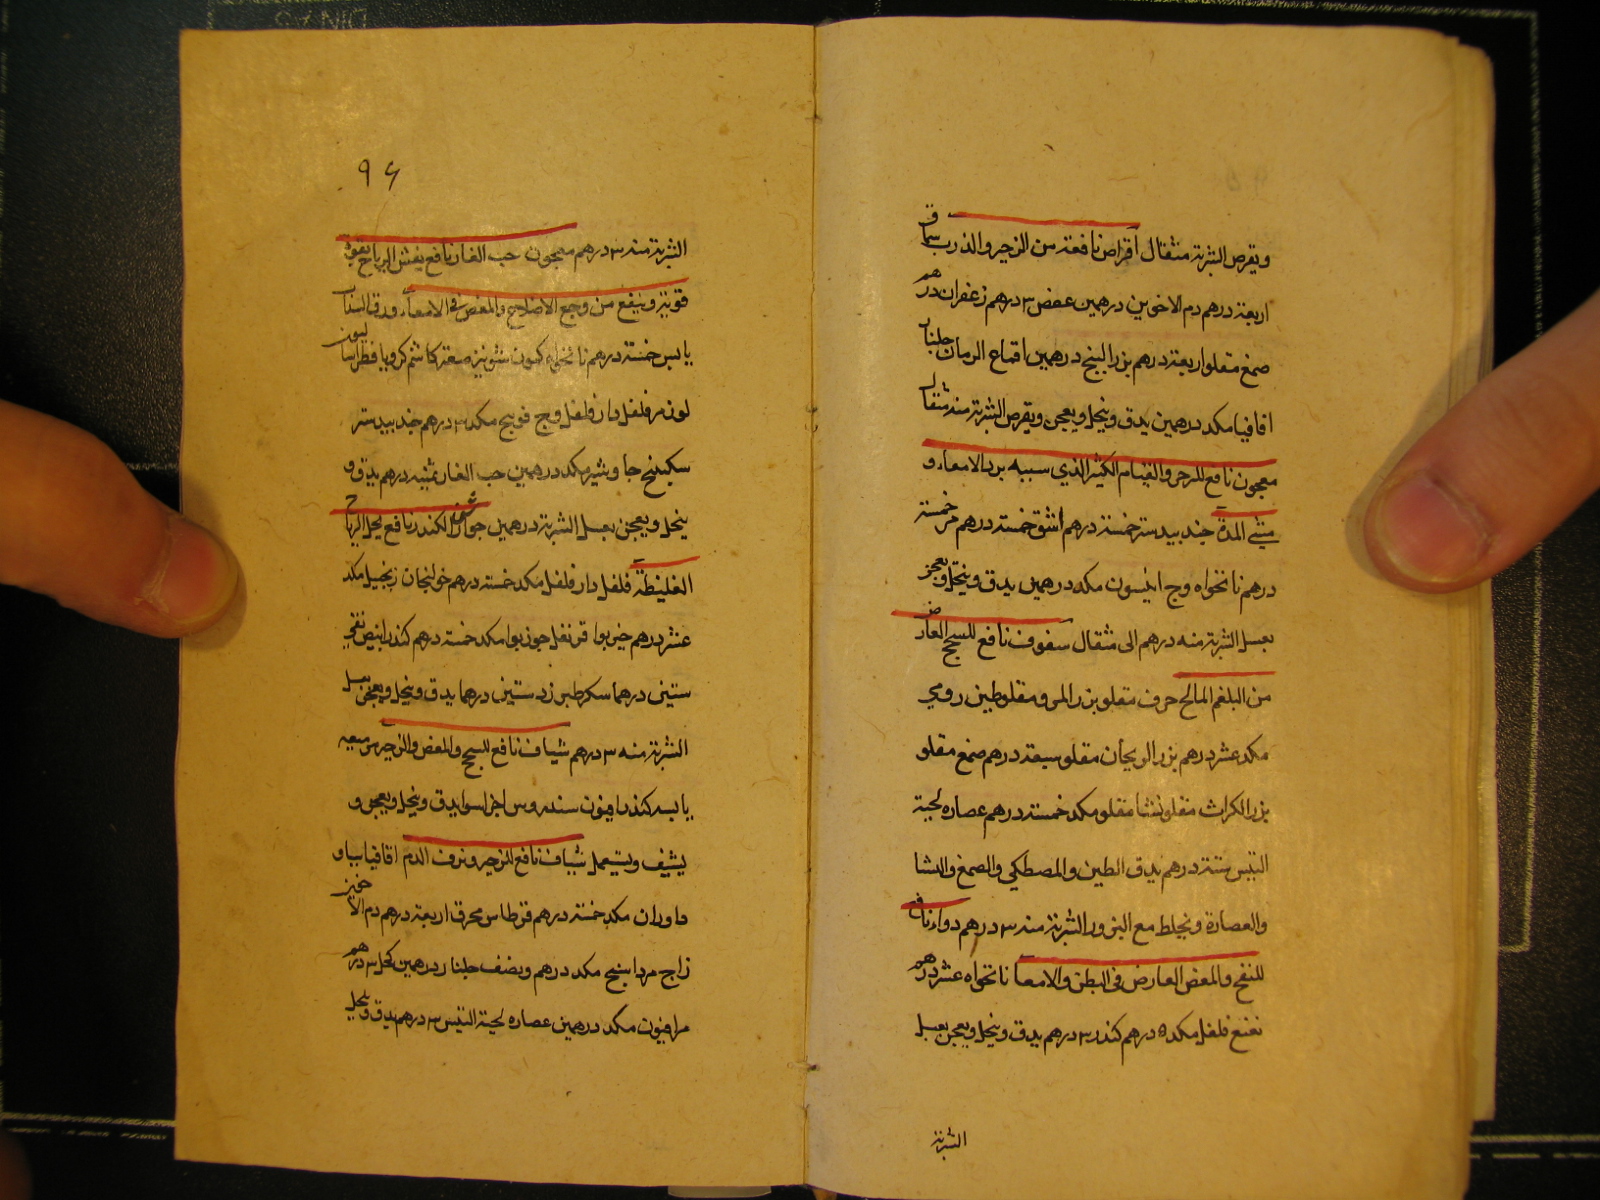 ويقرص الشربة مثقال اقراص نافعة من الزحير والذرب سماق
اربعة درهم دم الاخوين درهمين عفص ٣ درهم زعفران درهم
صمغ مقلو اربعة درهم بزر البنج درهمين اقماع الرمان جلنار
اقاقيا مكد درهمين يدق وينخل ويعجن ويقرص الشربة منه مثقال
معجون نافع للزحير والقيام الكثير الذي سببه برد الامعاء و
المدة جند بيدستر خمسة درهم اشق خمسة درهم خمسة
درهم نانخواه وج انيسون مكد درهمين يدق وينخل ويعجن
بعسل الشربة منه درهم الى مثقال سفوف نافع للسحج العارض
من البلغم المالح حرف مقلو بزر المرو مقلو طين رومي
مكد عشر درهم بزر الريحان مقلو سبعة درهم صمغ مقلو
بزر الكراث مقلو نشا مقلو مكد خمسة درهم عصاره لحية
التيس ستة درهم يدق الطين والمصطكي والصمغ والنشا
والعصارة ويخلط مع البزور الشربة منه ٣ درهم دواء نافع
للنفخ والمغص العارض في البطن والامعا نانخواه عشر درهم
نعنع فلفل مكد ٥ درهم كندر ٣ درهم يدق وينخل ويعجن بعسل
الشربة
٩٦
الشربة منه ٣ درهم معجون حب الغار نافع يفش الرياح بقوة
قوية وينفع من وجع الاضلاع والمغص في الامعاء ورق السذاب
يابس خمسة درهم نانخواه كمون شونيز صعتر كاشم كرويا فطراساليون
لوز مر فلفل دار فلفل وج فوتنج مكد ٣ درهم جند بيدستر
سكبينج جاوشير مكد درهمين حب الغار ثمنيه درهم يدق و
ينخل ويعجن بعسل الشربة درهمين جوارشن الكندر نافع يحل الرياح
الغليظة فلفل دار فلفل مكد خمسة درهم خولنجان زنجبيل مكد
عشر درهم خيربوا قرنفل جوزبوا مكد خمسة درهم كندر ابيض نقي
ستين درهما سكر طبرزد ستين درهما يدق وينخل ويعجن بعسل
الشربة منه ٣ درهم شياف نافع للسحج والمغص والزحير ميعه
يابسه كندر افيون سندروس اجزا سوا يدق وينخل ويعجن و
يشيف ويستعمل شياف نافع للزحير ونزف الدم اقاقيا
مكد خمسة درهم قرطاس محرق اربعة درهم دم الاخوين
زاج مرداسنج مكد درهم ونصف جلنار درهمين كحل ٣ درهم
مر افيون مكد درهمين عصاره لحية التيس ٣ درهم يدق وينخل